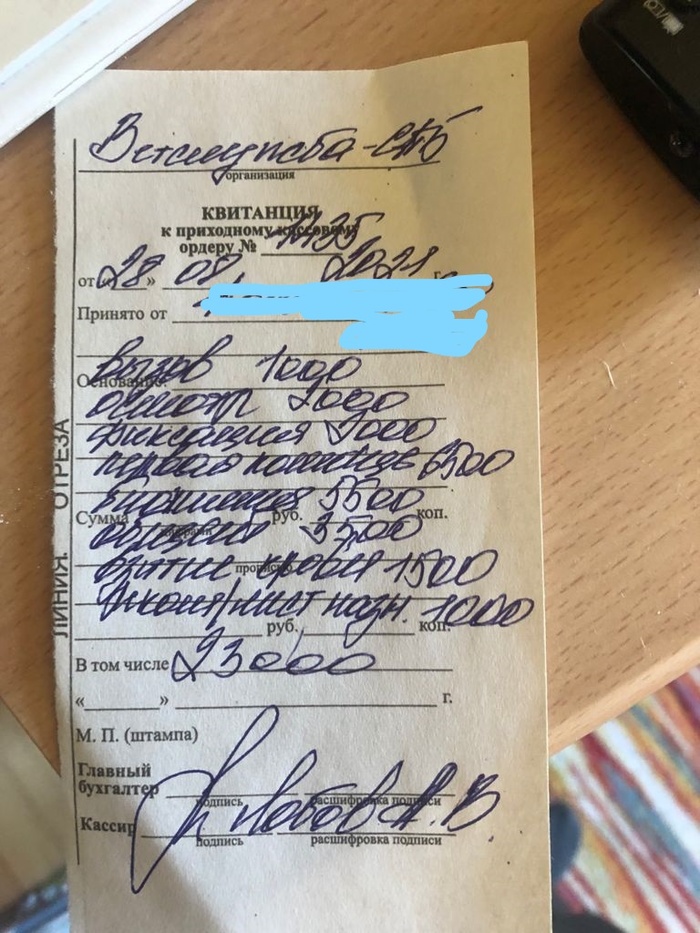 Ветслужба-СПб
организация
КВИТАНЦИЯ
к приходному кассовому
ордеру № 1135
от «28» 08. 2021 г.
Принято от
Основание:
вызов 1000
осмотр 2000
фиксация 2000
первая помощь 6500
5500
Сумма руб. коп.
3500
прописью
взятие крови 1500
лист назн. 1000
руб. коп.
В том числе 23000
« » г.
М. П. (штампа)
Главный
бухгалтер
подпись расшифровка подписи
Кассир Лобов А. В.
подпись расшифровка подписи
ЛИНИЯ ОТРЕЗА